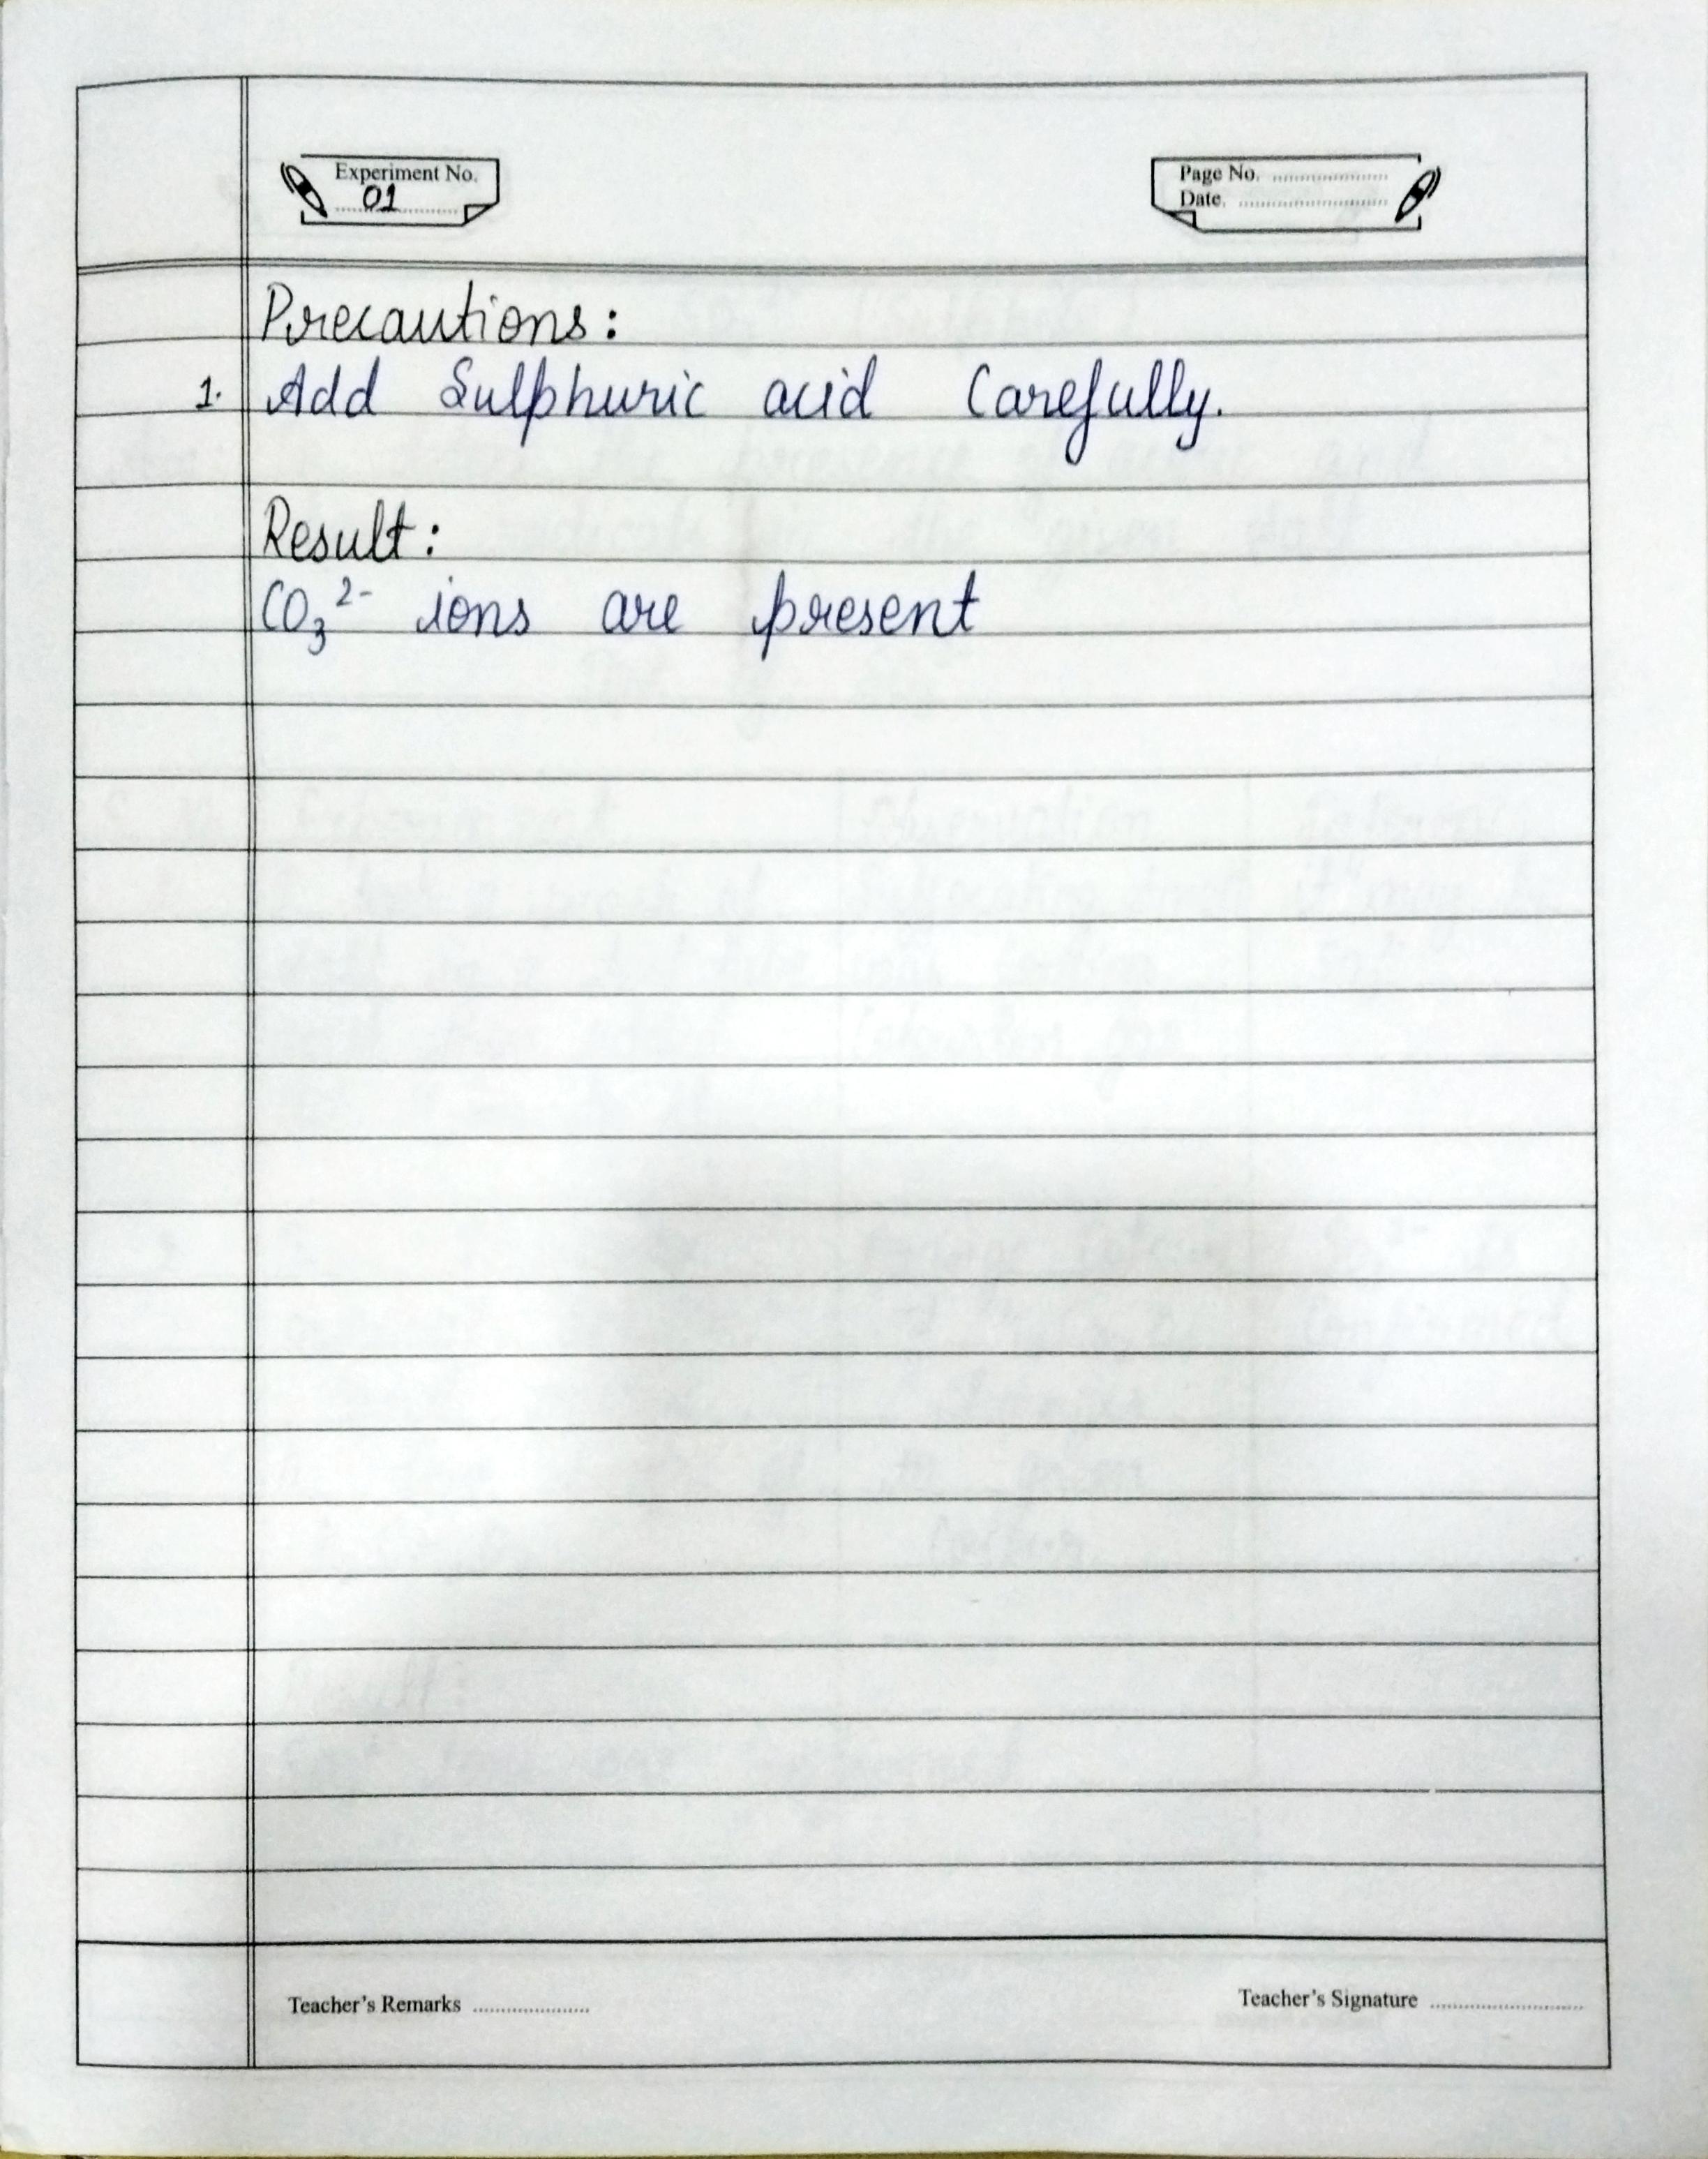 Experiment No.
01
Page No.
Date.
Precautions:
1. Add Sulphuric acid Carefully.
Result:
CO₃²⁻ ions are present
Teacher's Remarks
Teacher's Signature